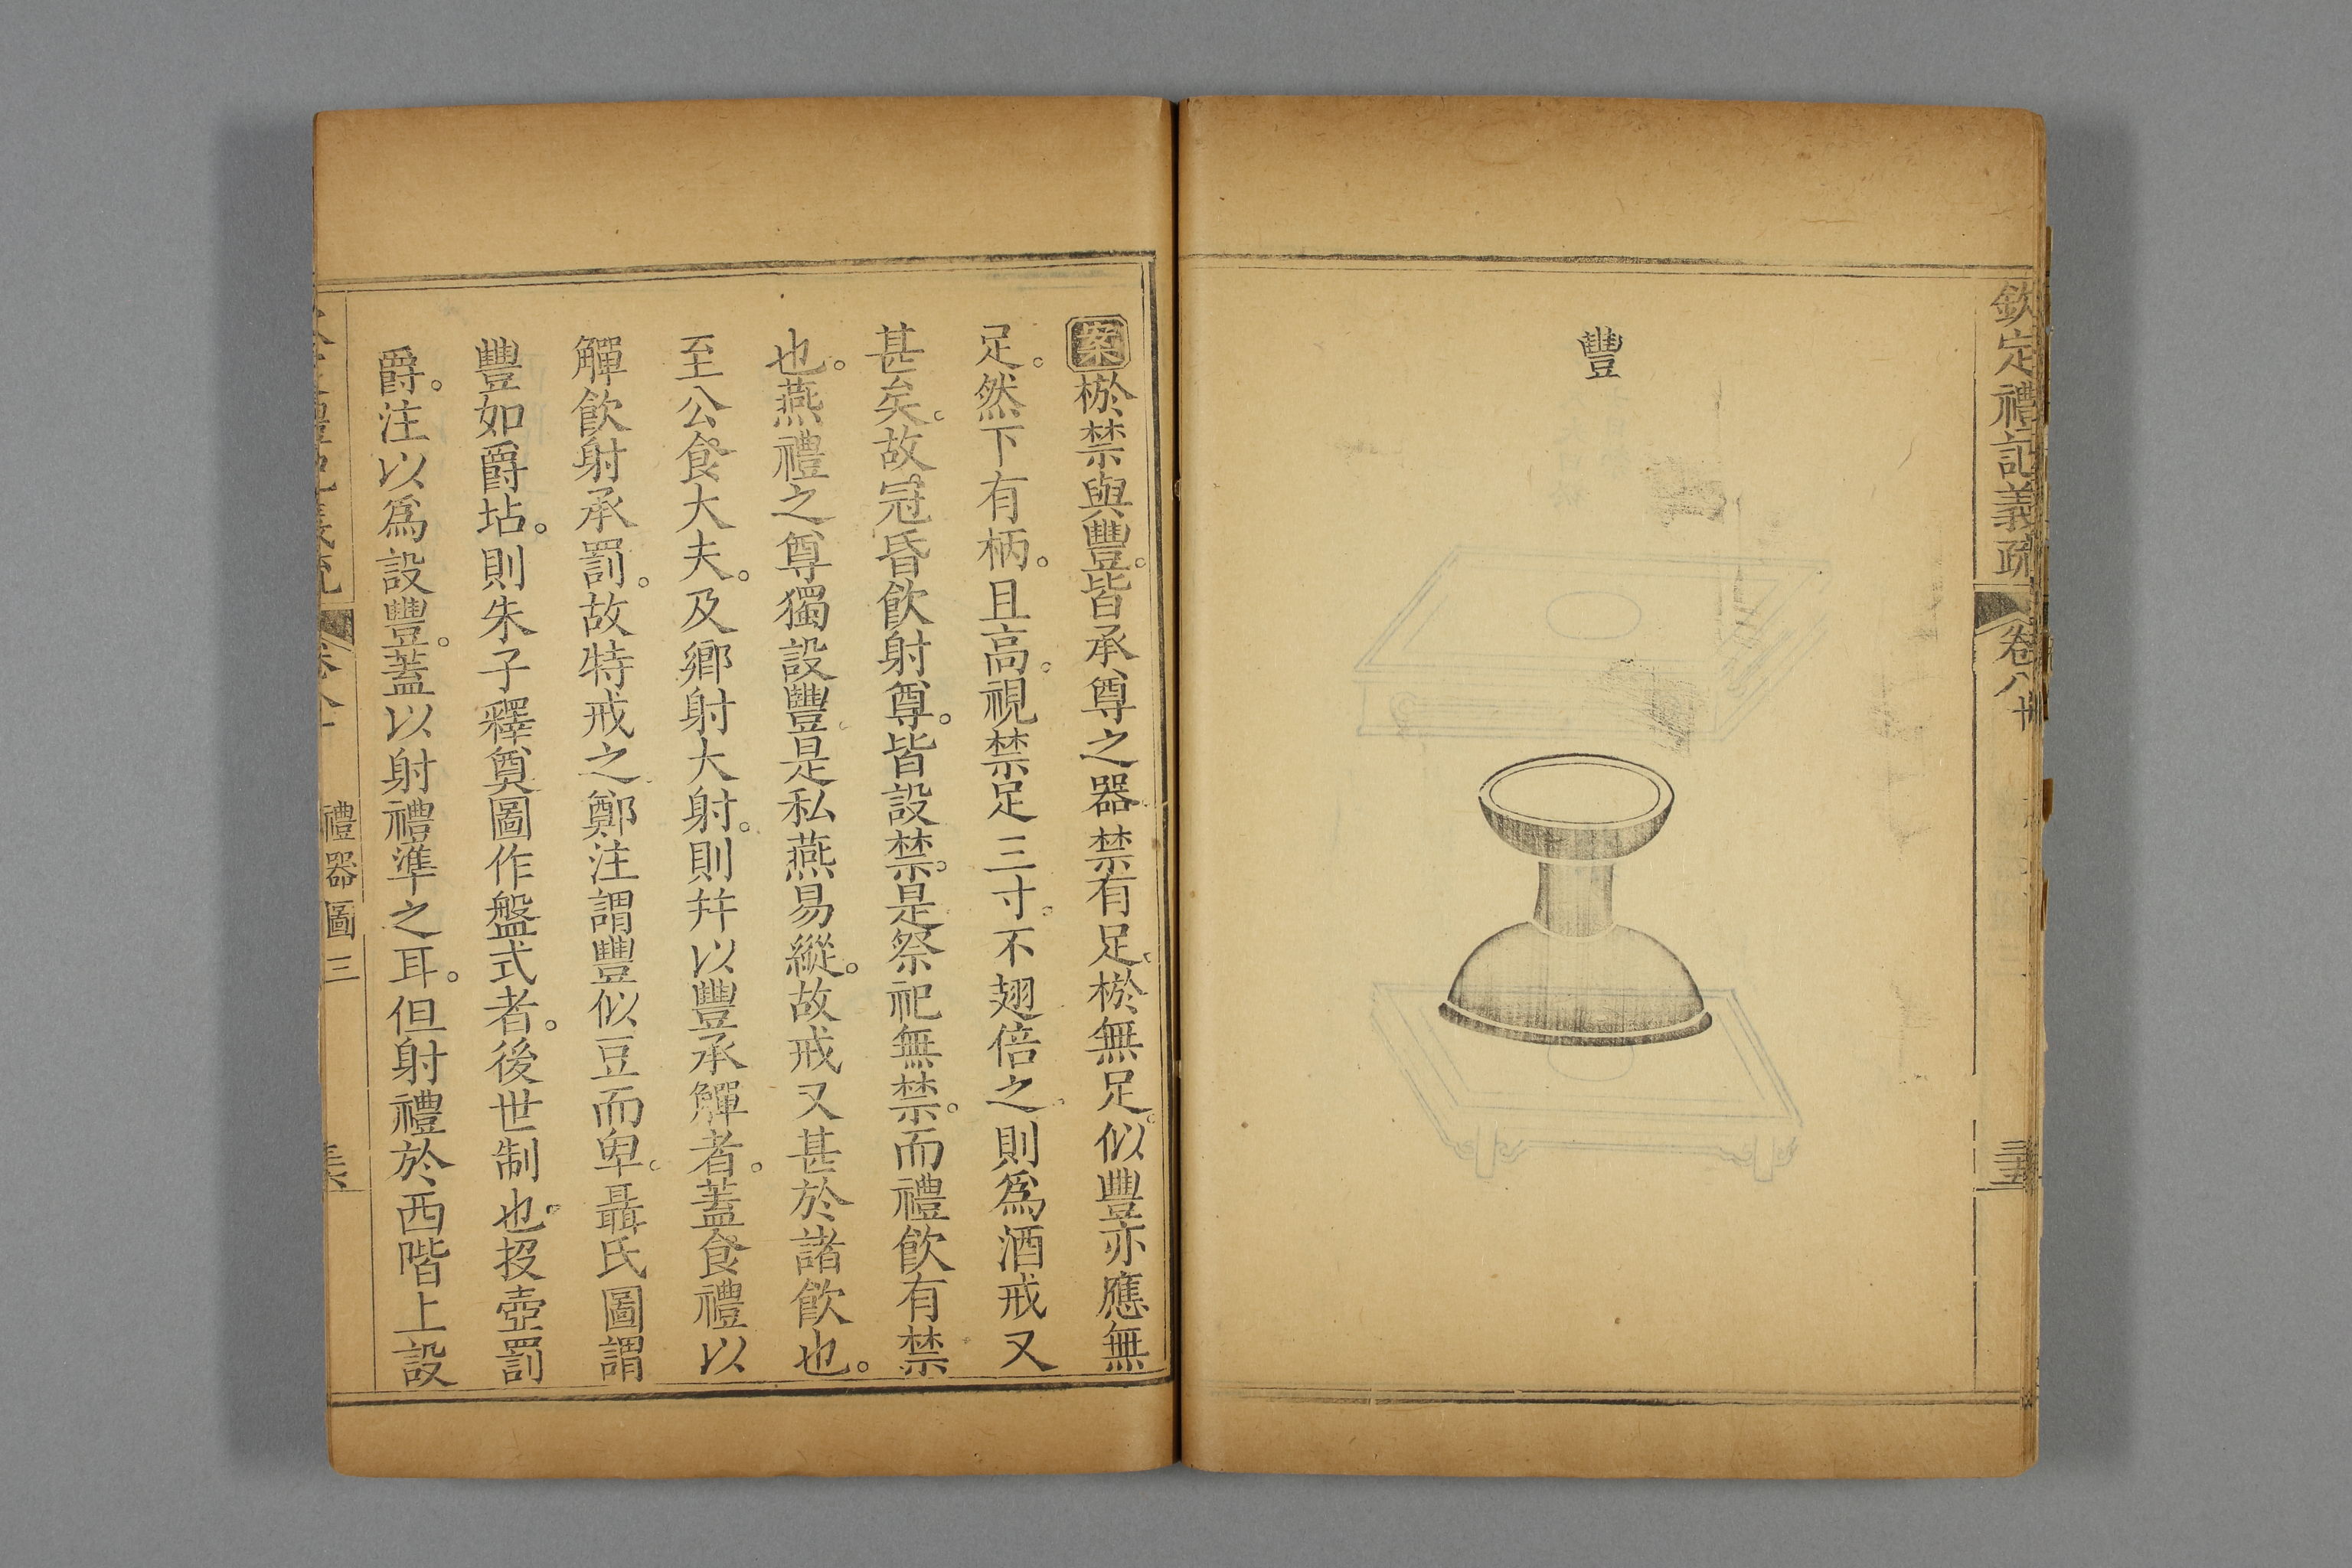 欽定禮記義疏
卷八十
豐
案棜禁與豐。皆承尊之器禁有足。棜無足。似豐亦應無
足。然下有柄。且高。視禁足三寸。不翅倍之。則爲酒戒又
甚矣。故冠昏飲射尊。皆設禁。是祭祀無禁。而禮飲有禁
也。燕禮之尊獨設豐。是私燕易縱。故戒又甚於諸飲也。
至公食大夫。及鄉射大射。則幷以豐承觶者。蓋食禮以
觶飲射承罰。故特戒之。鄭注謂豐似豆而卑。聶氏圖謂
豐如爵坫。則朱子釋奠圖作盤式者。後世制也。投壺罰
爵。注以爲設豐。蓋以射禮準之耳。但射禮於西階上設
禮器圖三